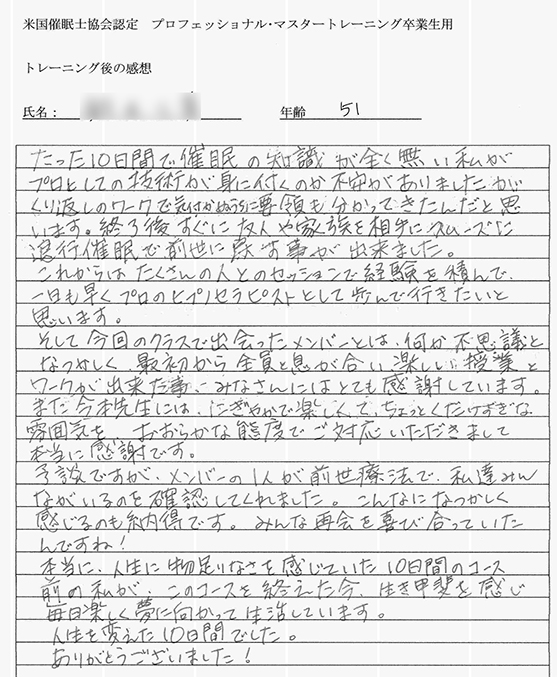 米国催眠士協会認定　プロフェッショナル・マスタートレーニング卒業生用
トレーニング後の感想
氏名：　　年齢　51
たった10日間で催眠の知識が全く無い私が
プロとしての技術が身に付くのか不安がありましたが
くり返しのワークで気付かぬうちに要領も分かってきたんだと思
います。終了後すぐに友人や家族を相手にスムーズに
退行催眠で前世に戻す事が出来ました。
これからはたくさんの人とのセッションで経験を積んで、
一日も早くプロのヒプノセラピストとして歩んで行きたいと
思います。
そして今回のクラスで出会ったメンバーとは、何か不思議と
なつかしく、最初から全員と息が合い、楽しい授業と
ワークが出来た事、みなさんにはとても感謝しています。
また今本先生には、にぎやかで楽しくて、ちょっとくだけすぎな
雰囲気を、おおらかな態度でご対応いただきまして
本当に感謝です。
予談ですが、メンバーの1人が前世療法で、私達みん
ながいるのを確認してくれました。こんなになつかしく
感じるのも納得です。みんな再会を喜び合っていた
んですね！
本当に、人生に物足りなさを感じていた10日間のコース
前の私が、このコースを終えた今、生き甲斐を感じ
毎日楽しく夢に向かって生活しています。
人生を変えた10日間でした。
ありがとうございました！